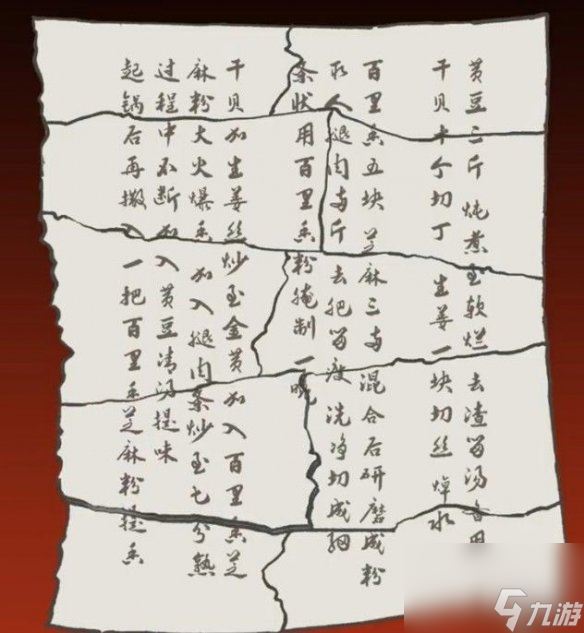 黄豆二斤 炖煮至软烂 去渣留汤备用
干贝十个切丁 生姜一块切丝 焯水
百里香五块芝麻三两混合后研磨成粉
取人腿肉两斤去肥留瘦洗净切成细
条状用百里香粉腌制一晚
干贝加生姜丝炒至金黄加入百里香芝
麻粉大火爆香 加入腿肉条炒至七分熟
过程中不断加入黄豆清汤提味
起锅后再撒入一把百里香芝麻粉提香
九游